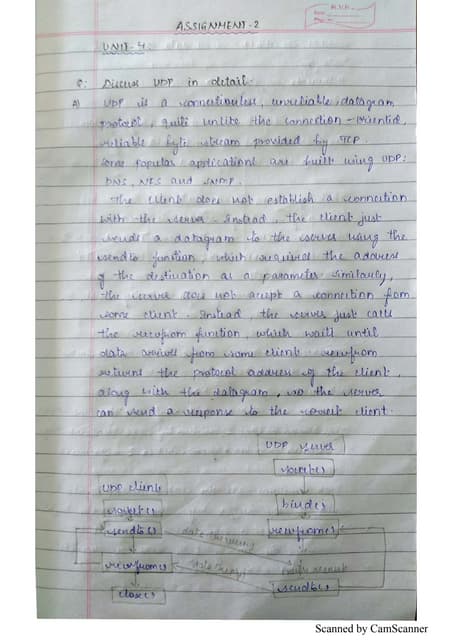 ASSIGNMENT-2
UNIT-4
Q: Discuss UDP in detail.
A) UDP is a connectionless, unreliable, datagram
protocol, quite unlike the connection-oriented,
reliable byte stream provided by TCP.
Some popular applications are built using UDP:
DNS, NFS and SNMP.
The client does not establish a connection
with the server. Instead, the client just
sends a datagram to the server using the
sendto function, which requires the address
of the destination as a parameter. Similarly,
the server does not accept a connection from
some client. Instead, the server just calls
the recvfrom function, which waits until
data arrives from some client. recvfrom
returns the protocol address of the client,
along with the datagram, so the server
can send a response to the correct client.
UDP server
socket()
UDP client
bind()
socket()
sendto()
data (request)
recvfrom()
recvfrom()
data (reply)
process request
sendto()
close()
Scanned by CamScanner